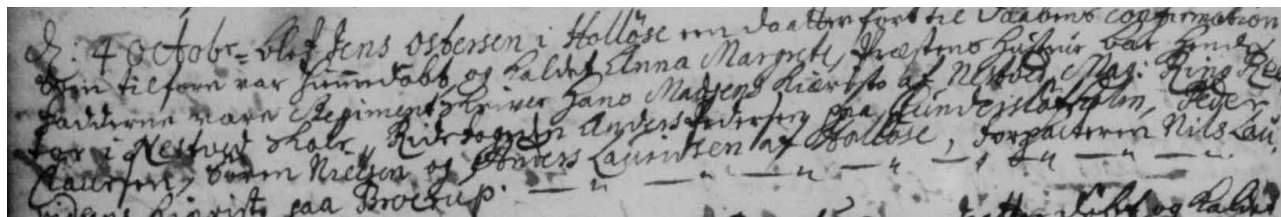 d: 4 octobr= blef Jens Osbersen i Holløse en daatter fort til daabens confirmation
som tilforn var hiemedøbt, og kaldet Anna Margrete, Præstens Hustrue bar hende
Fadderne vare Regimentskriver Hans Madsens Kiæriste af Nestved, Mag: Ring Rec
tor i Nestved Skole, Ridefogden Anders Pedersen paa Gundersløfholm, Peder
Laursen, Søren Nielsen og Anders Lauridsen af Holløse, Forpacteren Nils Lau
ridsens Kiæriste paa Broerup.
datter døbt og kaldet